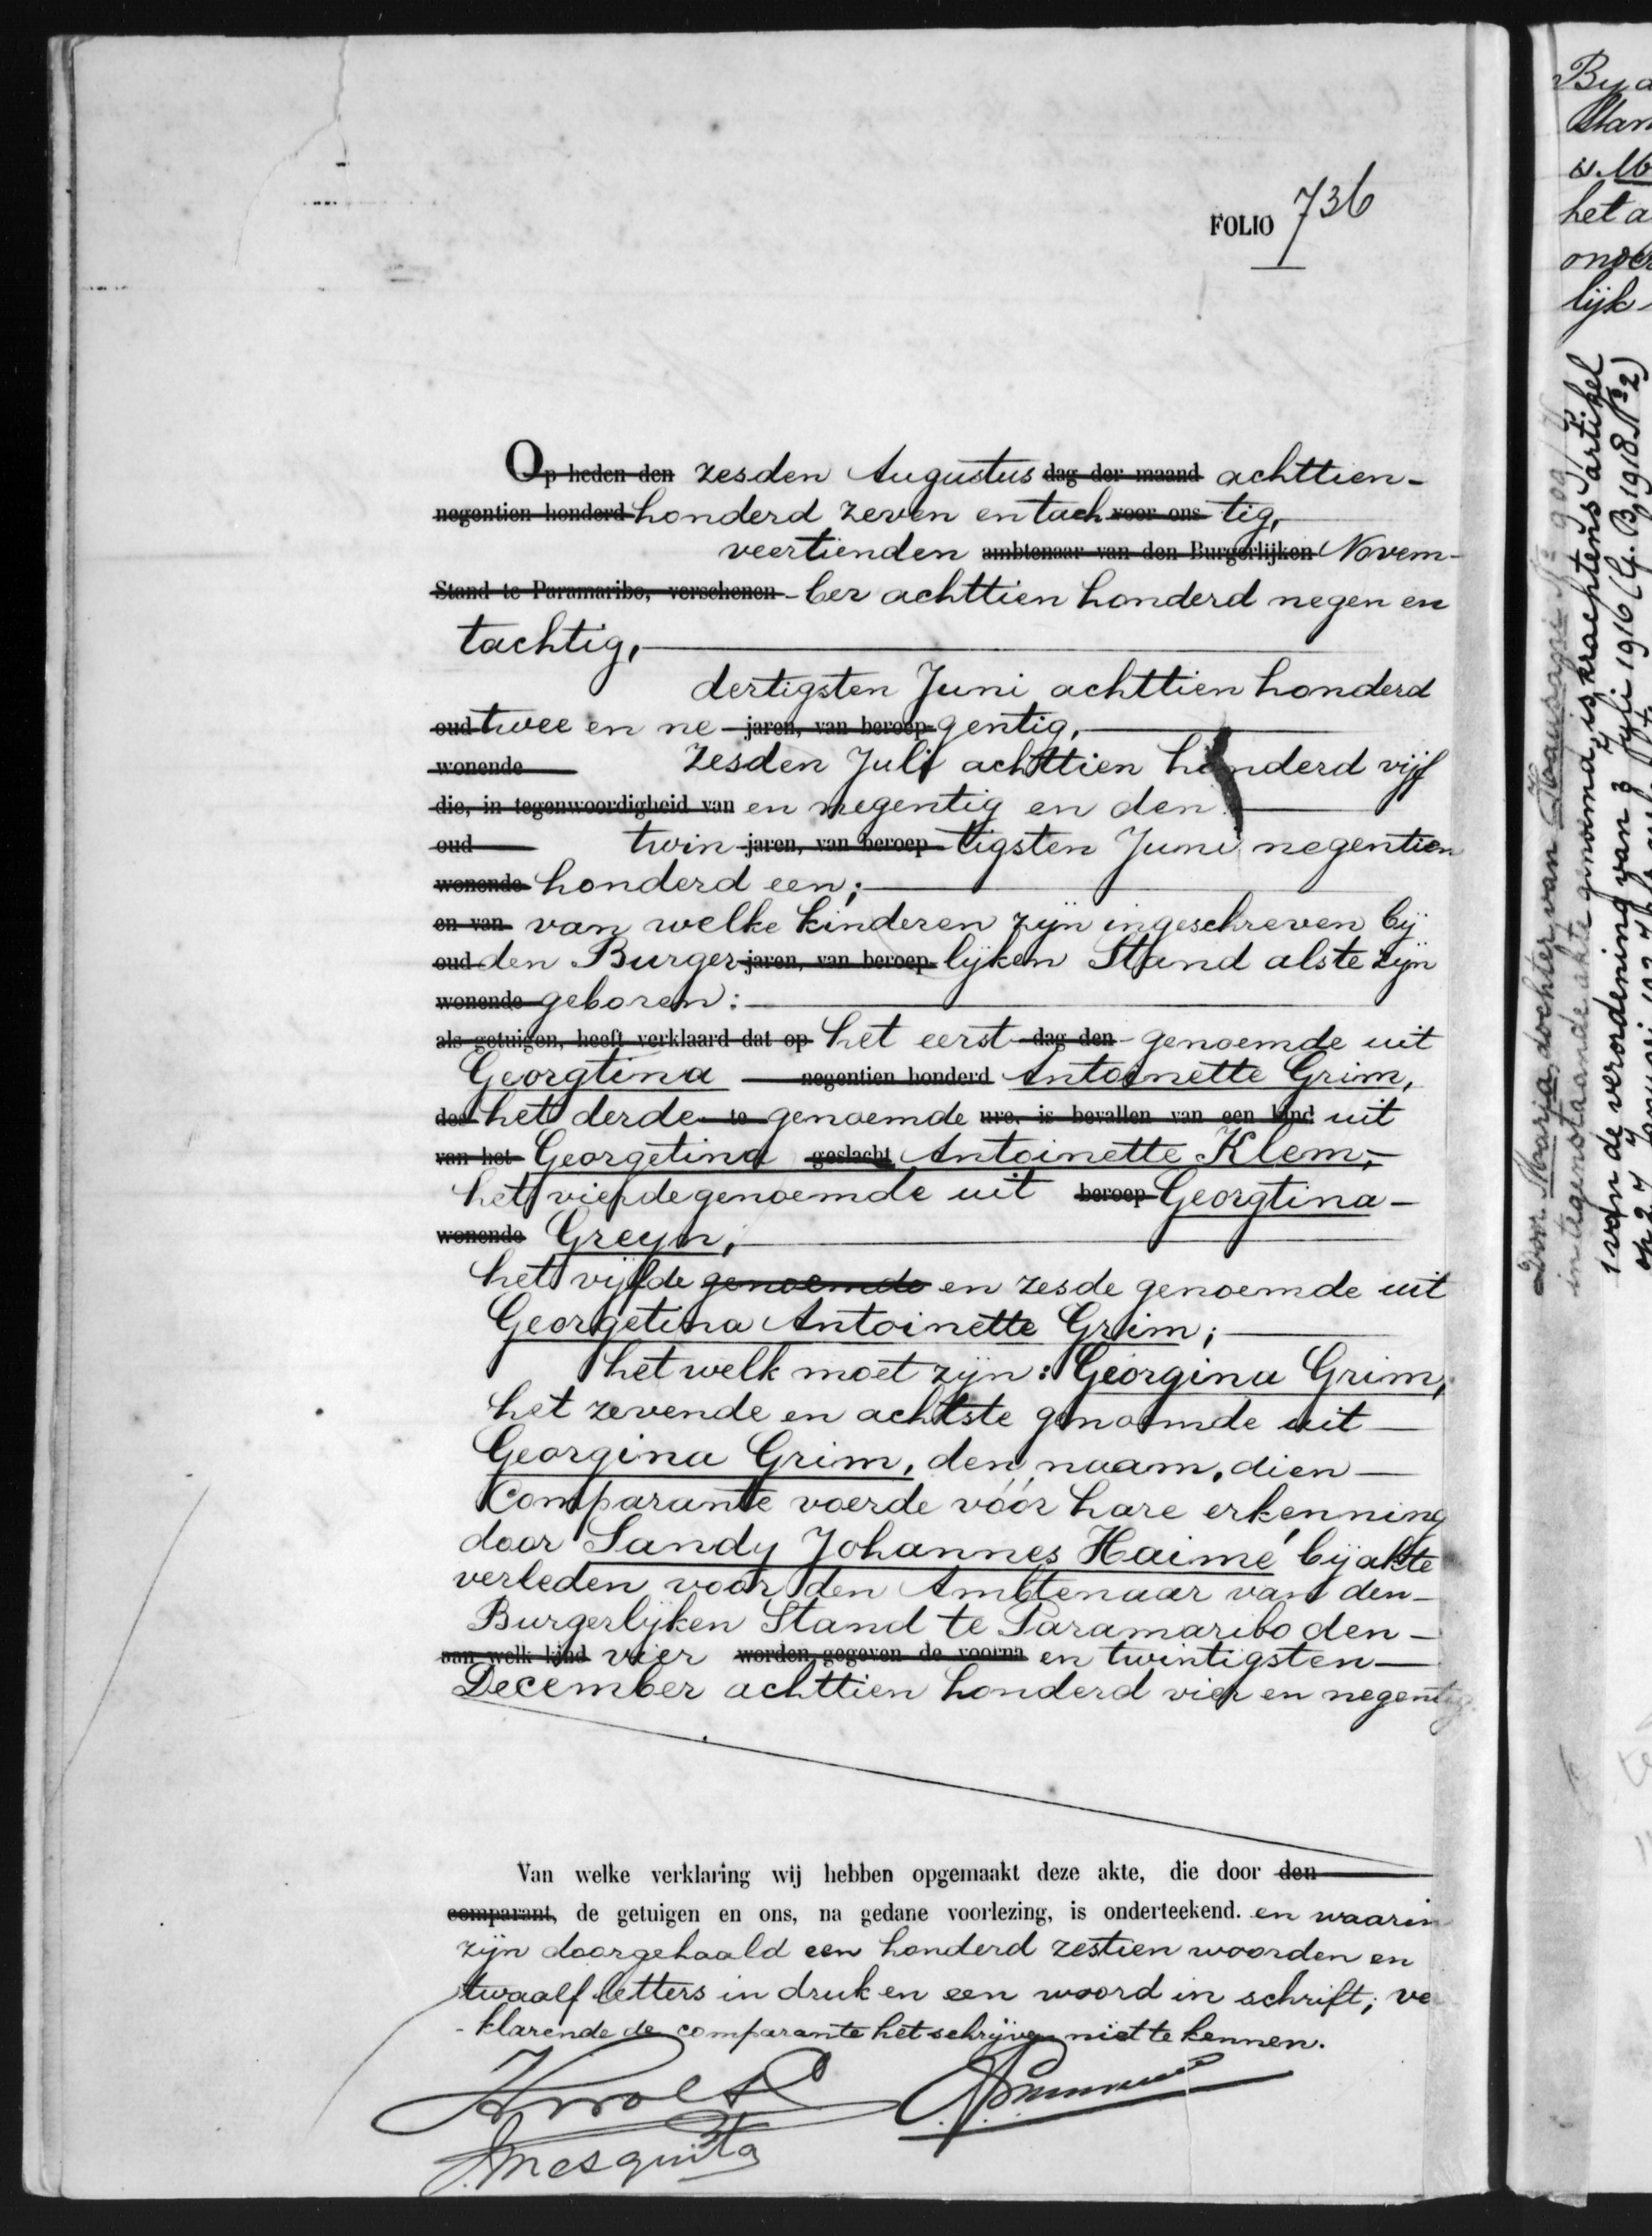 FOLIO 736
Op heden den zesden Augustus dag der maand achttien-
negentien honderd honderd zeven en tach voor ons tig,
veertienden ambtenaar van den Burgerlijken Novem-
Stand te Paramaribo, verschenen -ber achttien honderd negen en
tachtig,
dertigsten Juni achttien honderd
oud twee en ne jaren, van beroep gentig,
wonende zesden Juli achttien honderd vijf
die, in tegenwoordigheid van en negentig en den
oud twin jaren, van beroep tigsten Juni negentien
wonende honderd een;
en van van welke kinderen zijn ingeschreven bij
oud den Burger jaren, van beroep lijken Stand als te zijn
wonende geboren:
als getuigen, heeft verklaard dat op het eerst dag den genoemde uit
Georgtina negentien honderd Antoinette Grim,
des het derde te genoemde ure, is bevallen van een kind uit
van het Georgetina geslacht Antoinette Klem,-
het vierde genoemde uit beroep Georgtina-
wonende Greyn,
het vijfde genoemde en zesde genoemde uit
Georgetina Antoinette Grim;
het welk moet zijn: Georgina Grim,
het zevende en achtste genoemde uit
Georgina Grim, den naam, dien
Comparante voerde vóór hare erkenning
door Sandy Johannes Haimé bij akte
verleden voor den Ambtenaar van den-
Burgerlijken Stand te Paramaribo den-
aan welk kind vier worden gegeven de voorna en twintigsten
December achttien honderd vier en negentig
Van welke verklaring wij hebben opgemaakt deze akte, die door den
comparant, de getuigen en ons, na gedane voorlezing, is onderteekend. en waarin
zijn doorgehaald een honderd zestien woorden en
twaalf letters in druk en een woord in schrift; ver
-klarende de comparante het schrijven niet te kennen.
JMesquita
By a
Stan
is Mo
het a
onder
lijk
Door Maarja dochter van
in tegenstaande akte genoemd, is krachtens artikel
1 van de verordening van 3 Juli 1916 (G.B. 1918 No 2)